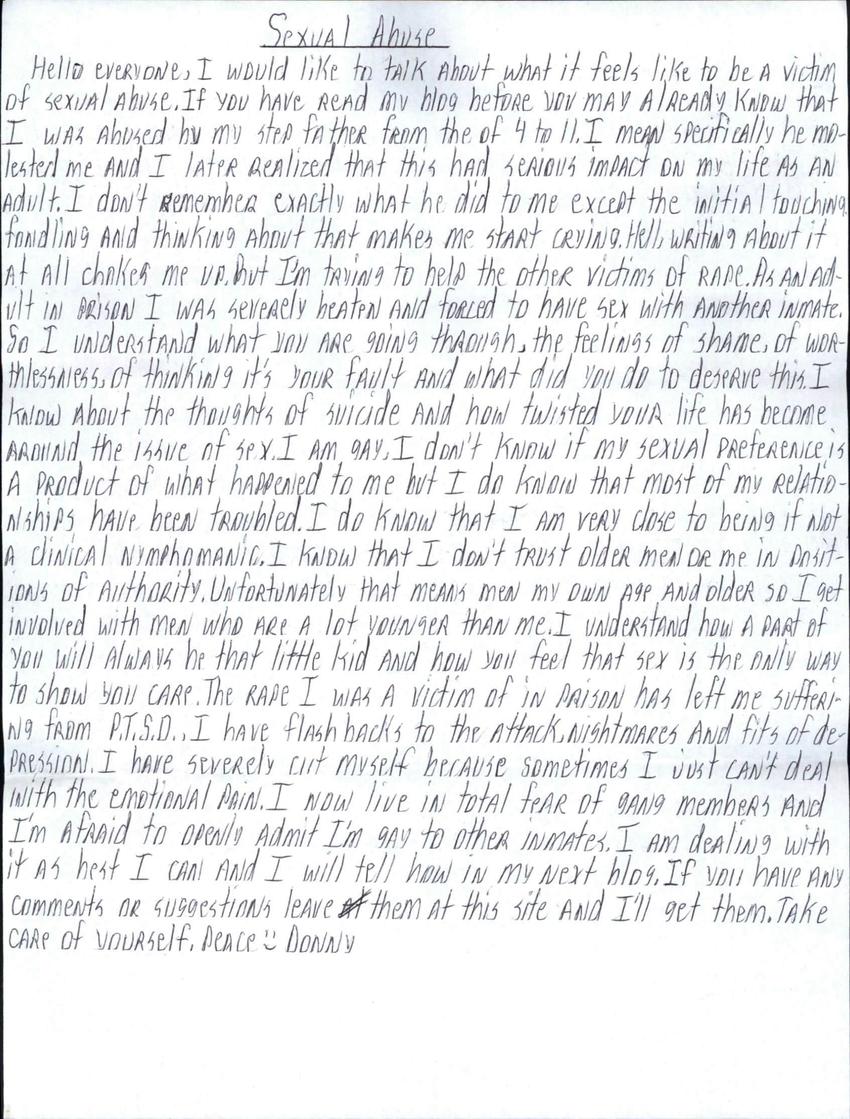 Sexual Abuse
Hello everyone, I would like to talk about what it feels like to be a victim
of sexual abuse. If you have read my blog before you may already know that
I was abused by my step father from the of 4 to 11. I mean specifically he mo-
lested me and I later realized that this had serious impact on my life as an
adult. I don't remember exactly what he did to me except the initial touching,
fondling and thinking about that makes me start crying. Hell, writing about it
at all chokes me up. But I'm trying to help the other victims of rape. As an ad-
ult in prison I was severely beaten and forced to have sex with another inmate.
So I understand what you are going through, the feelings of shame, of wor-
thlessness, of thinking it's your fault and what did you do to deserve this. I
know about the thoughts of suicide and how twisted your life has become
around the issue of sex. I am gay, I don't know if my sexual preference is
a product of what happened to me but I do know that most of my relatio-
nships have been troubled. I do know that I am very close to being if not
a clinical nymphomanic. I know that I don't trust older men or me in posit-
ions of authority. Unfortunately that means men my own age and older so I get
involved with men who are a lot younger than me. I understand how a part of
you will always be that little kid and how you feel that sex is the only way
to show you care. The rape I was a victim of in prison has left me sufferi-
ng from P.T.S.D., I have flashbacks to the attack, nightmares and fits of de-
pression. I have severely cut myself because sometimes I just can't deal
with the emotional pain. I now live in total fear of gang members and
I'm afraid to openly admit I'm gay to other inmates. I am dealing with
it as best I can and I will tell how in my next blog. If you have any
comments or suggestions leave them at this site and I'll get them. Take
care of yourself. Peace :) Donny